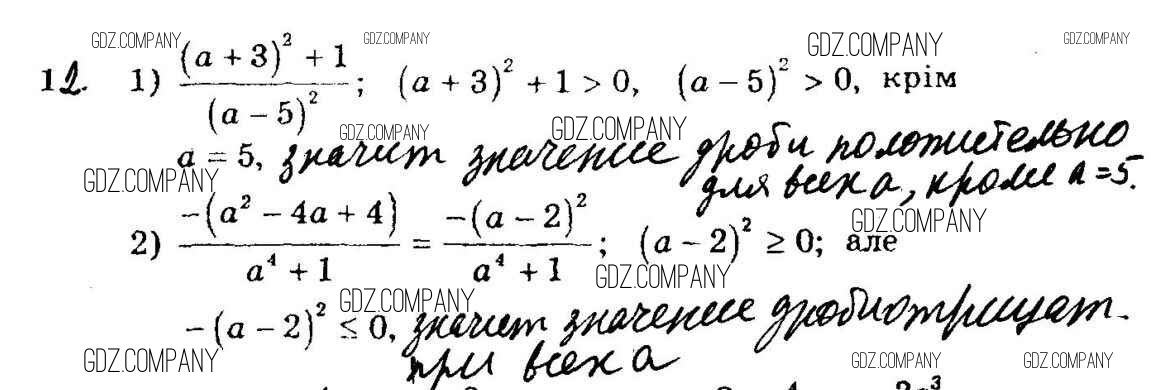 GDZ.COMPANY GDZ.COMPANY GDZ.COMPANY GDZ.COMPANY
12. 1) ((a + 3)² + 1)/(a − 5)²; (a + 3)² + 1 > 0, (a − 5)² > 0, крім
GDZ.COMPANY GDZ.COMPANY
a = 5, значит значение дроби положительно
GDZ.COMPANY
для всех a, кроме a = 5.
GDZ.COMPANY
2) −(a² − 4a + 4)/(a⁴ + 1) = −(a − 2)²/(a⁴ + 1); (a − 2)² ≥ 0; але
GDZ.COMPANY
GDZ.COMPANY
−(a − 2)² ≤ 0, значит значение дроби отрицат.
GDZ.COMPANY GDZ.COMPANY GDZ.COMPANY
при всех a